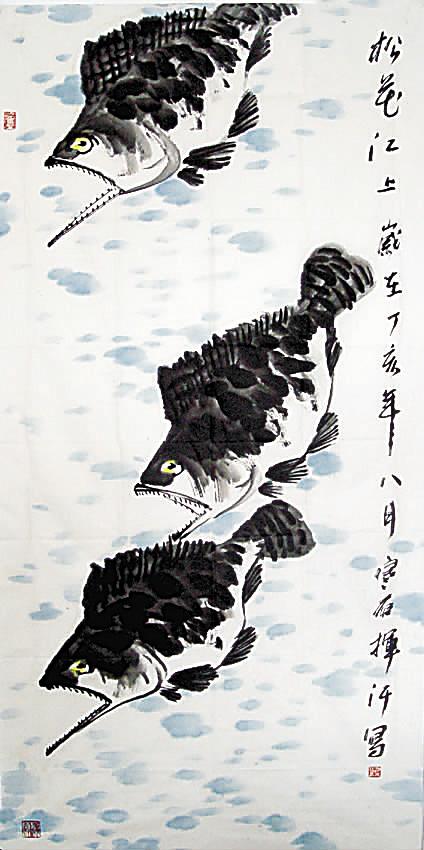 松花江上 歲在丁亥年八月 寒石揮汗寫